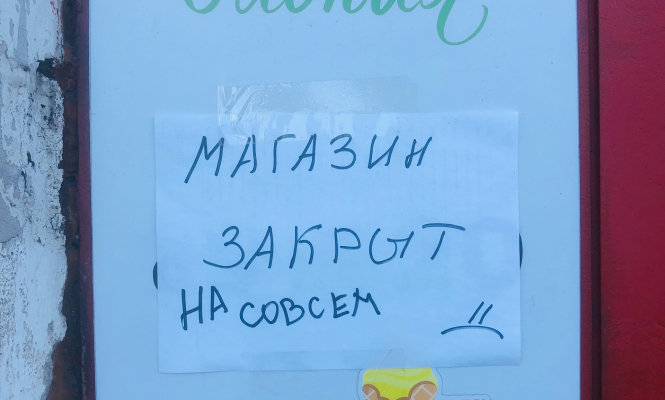 МАГАЗИН
ЗАКРЫТ
НА СОВСЕМ